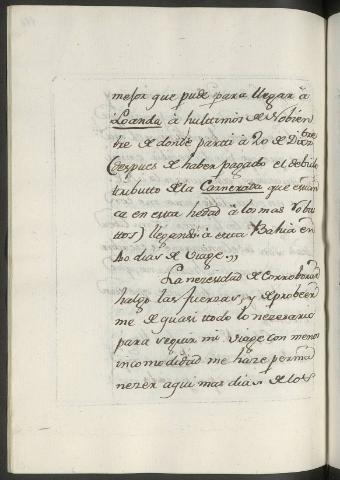 mejor que pude para llegar â
Loanda â hultimos de Nobiem
bre de donde parti â 20 de Dizre
(despues de haber pagado el debido
tributto de la Carnerada que
ca en esta hedad â los mas robus
ttos) llegando â esta Bahia en
dias de viage.,,
La nezesidad de Corroborar
halgo las fuerzas, y de probeer
me de quasi ttodo lo nezesario
para seguir mi viage con menos
incomodidad me haze perma
nezer aqui mas dias de los